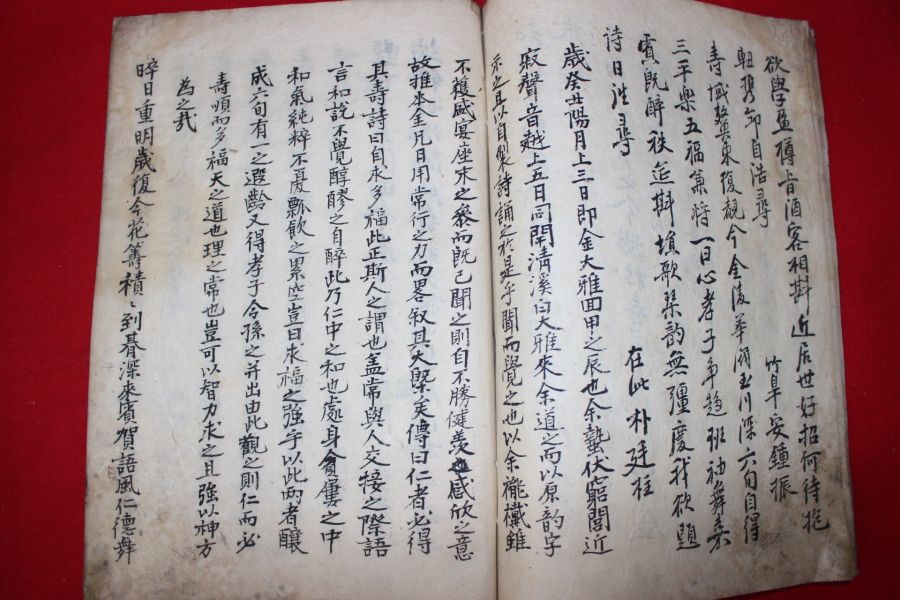 欲學盈樽旨酒客相斟近居世好招何待抱
竹皐安鍾振
軺携節自浩尋
壽域鰲東復覩今金陵華閥玉川深六旬自得
三平樂五福兼將一日心孝子爭趨班袖舞嘉
賓旣醉秩筵斟塤歌琴韵無彊慶我欲題
詩日浩尋
在此朴廷柱
歲癸丑陽月上三日卽金大雅回甲之辰也余蟄伏窮閭近
寂聲音越上五日同開淸溪白大雅來余道之而以原韵字
示之且以自製詩誦之於是乎聞而覺之也以余襤襪雖
不獲盛宴座末之參而旣已聞之則自不勝健羨感欣之意
故推本金兄日用常行之力而畧叙其大槩矣傳曰仁者必得
其壽詩曰自求多福此正斯人之謂也盖常與人交接之際語
言和說不覺醇醪之自醉此乃仁中之和也處身貧窶之中
和氣純粹不憂瓢飮之累空豈曰求福之強乎以此兩者釀
成六旬有一之遐齡又得孝子令孫之幷出由此觀之則仁而必
壽順而多福天之道也理之常也豈可以智力求之且強以神方
爲之哉
晬日重明歲復今花籌積〻到暮深來賓賀語風仁德舞